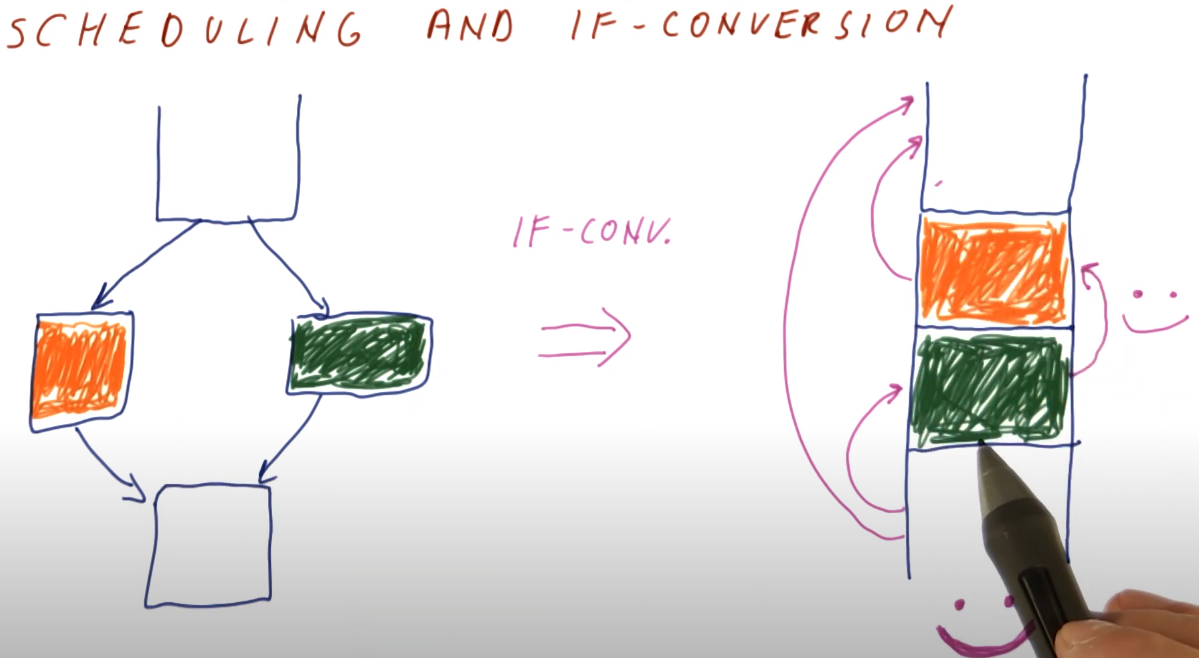 SCHEDULING AND IF-CONVERSION
IF-CONV.